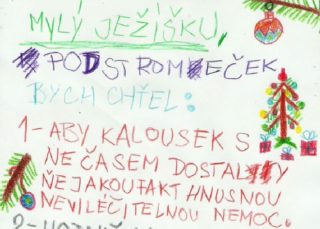 MYLÝ JEŽÍŠKU,
PODSTROMEČEK
BYCH CHTEL:
1-ABY KALOUSEK S
NEČASEM DOSTALY
ŇEJAKOU FAKT HNUSNOU
NEVILÉČITELNOU NEMOC.